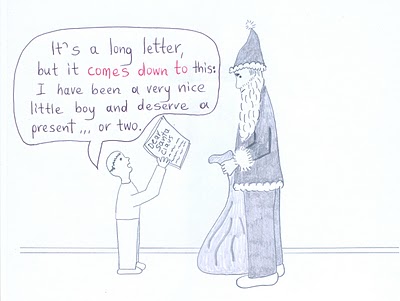 It's a long letter,
but it comes down to this:
I have been a very nice
little boy and deserve a
present ,,, or two.
Dear
Santa
Claus